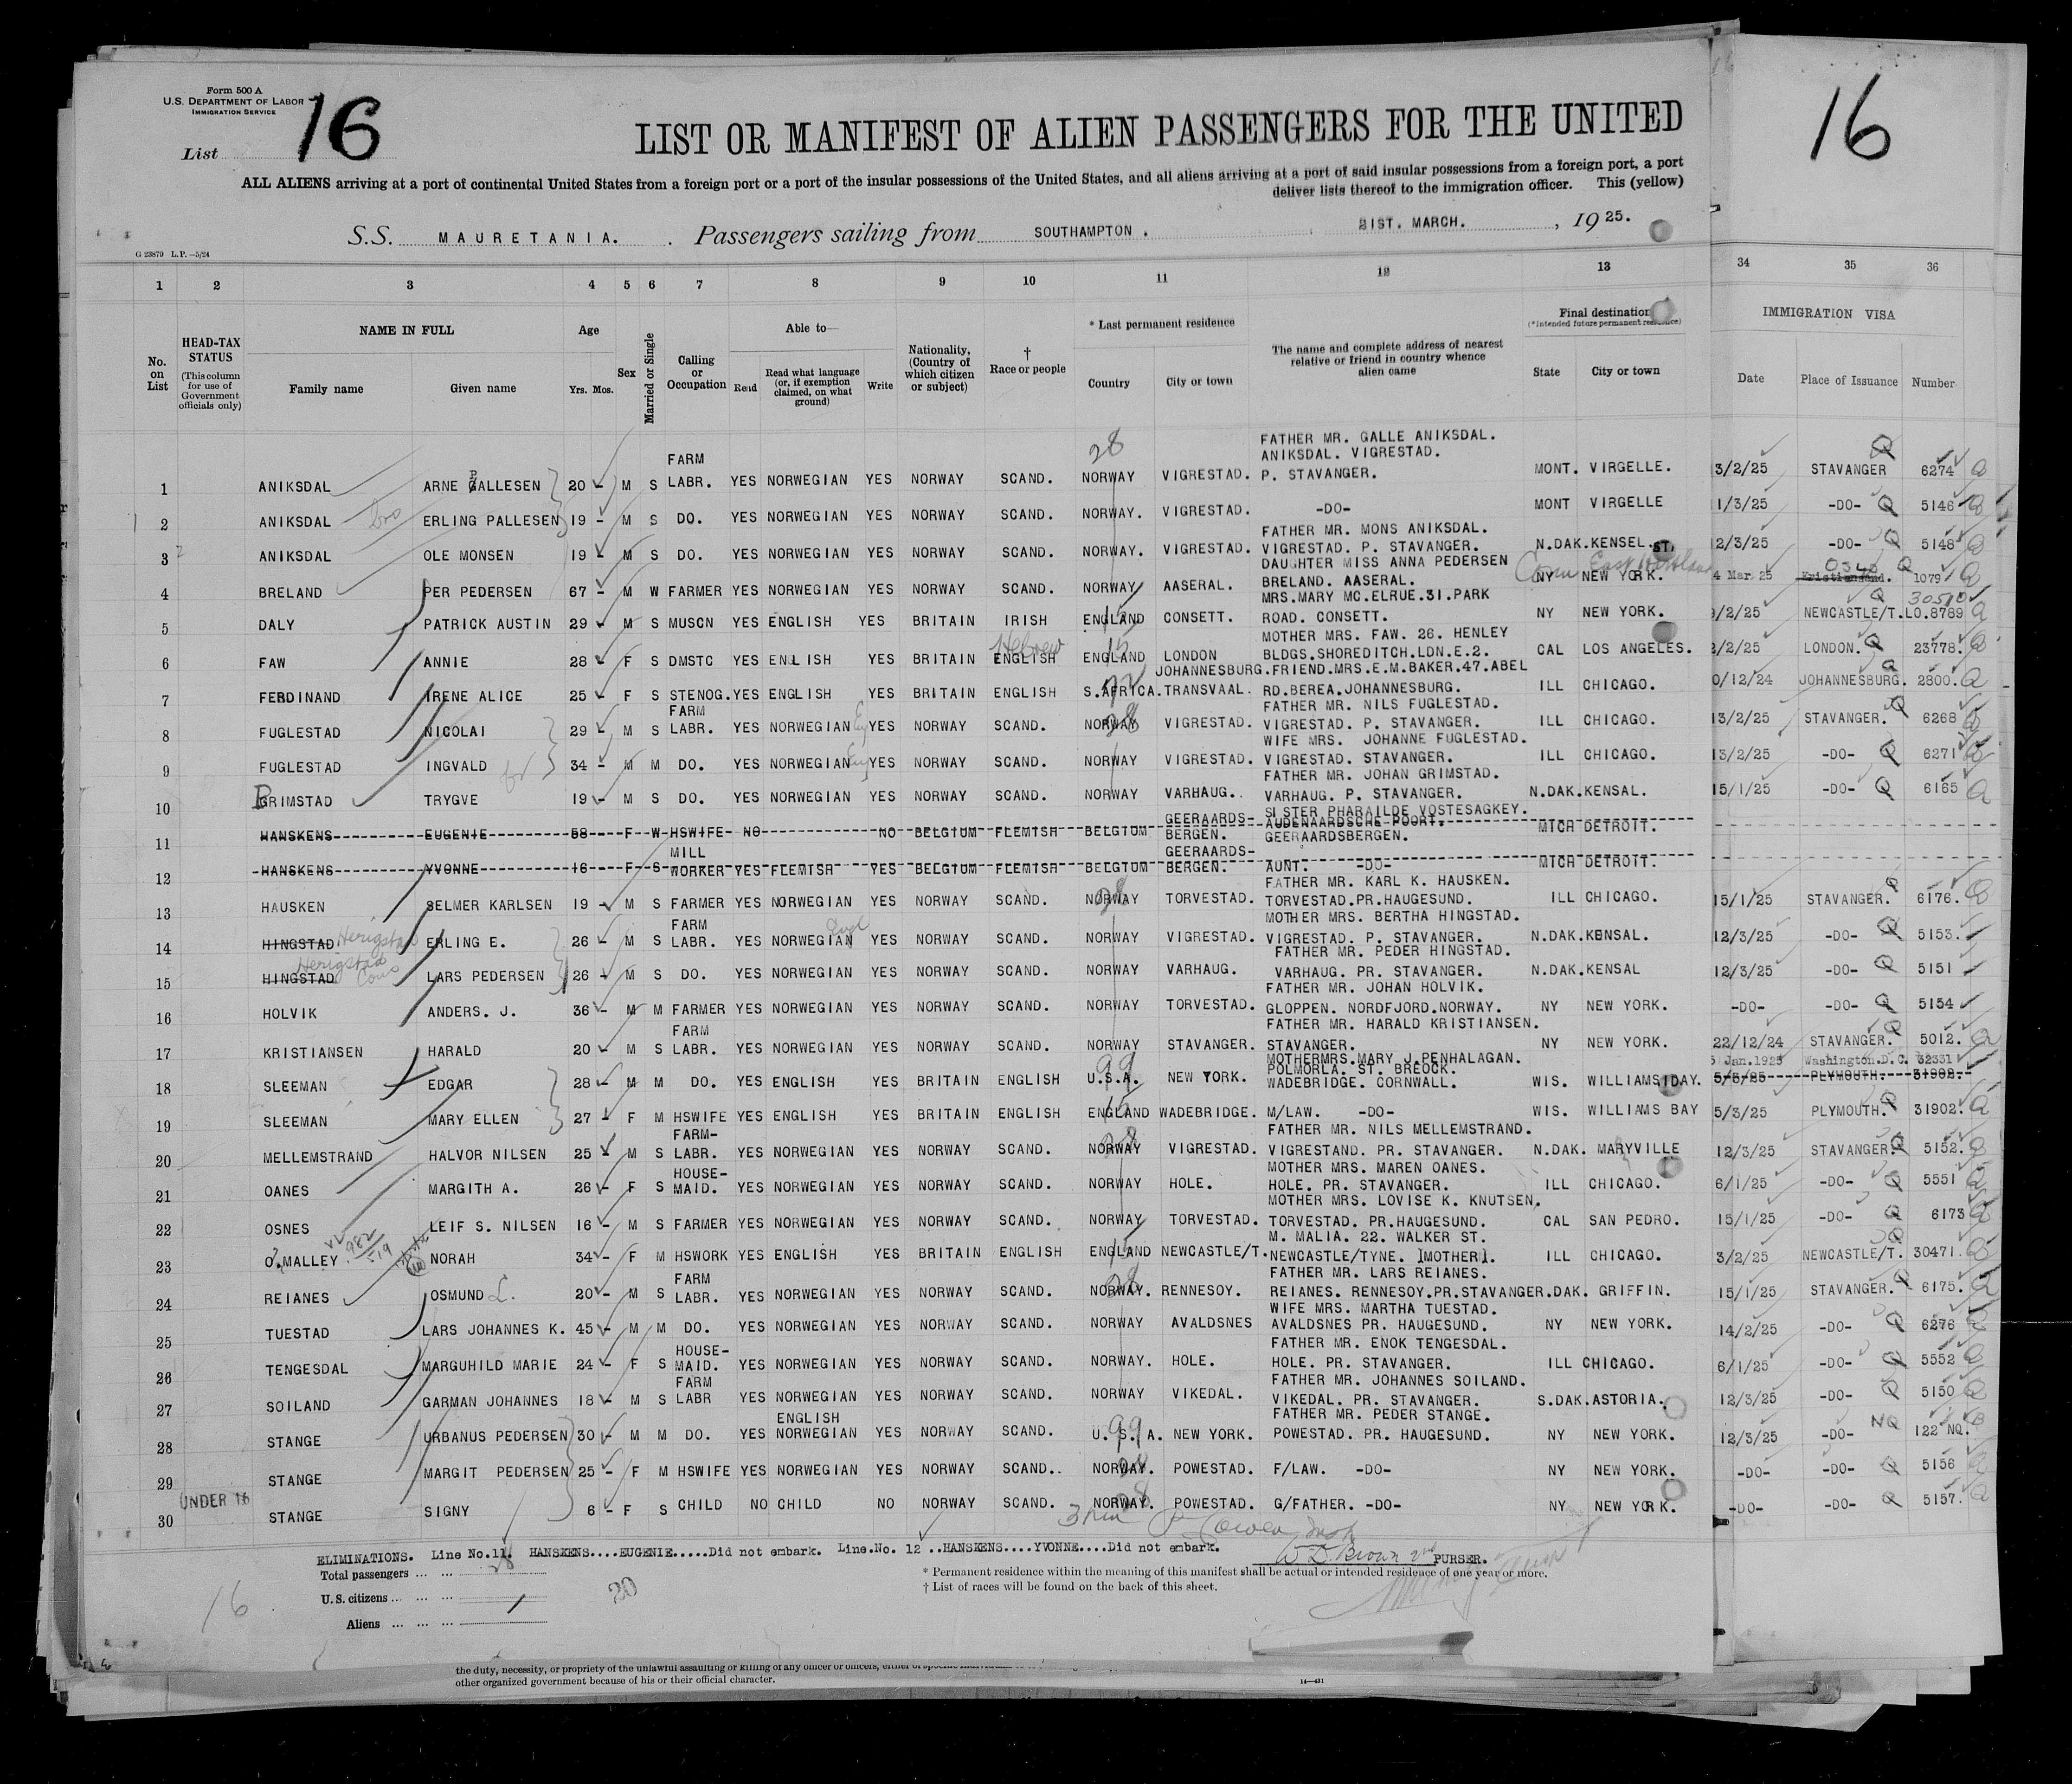 Form 500 A
U.S. DEPARTMENT OF LABOR
IMMIGRATION SERVICE
List 16
16
LIST OR MANIFEST OF ALIEN PASSENGERS FOR THE UNITED
ALL ALIENS arriving at a port of continental United States from a foreign port or a port of the insular possessions of the United States, and all aliens arriving at a port of said insular possessions from a foreign port, a port
deliver lists thereof to the immigration officer. This (yellow)
S.S. MAURETANIA. Passengers sailing from SOUTHAMPTON. 21ST. MARCH. , 1925.
G 23879 L.P.—5/24
1 2 3 4 5 6 7 8 9 10 11 12 13 34 35 36
No. on List
HEAD-TAX STATUS (This column for use of Government officials only)
NAME IN FULL
Family name Given name
Age
Yrs. Mos.
Sex
Married or Single
Calling or Occupation
Able to—
Read Read what language (or, if exemption claimed, on what ground) Write
Nationality, (Country of which citizen or subject)
† Race or people
* Last permanent residence
Country City or town
The name and complete address of nearest relative or friend in country whence alien came
Final destination
(*Intended future permanent residence)
State City or town
IMMIGRATION VISA
Date Place of Issuance Number
1 ANIKSDAL ARNE PALLESEN 20 - M S FARM LABR. YES NORWEGIAN YES NORWAY SCAND. NORWAY VIGRESTAD. FATHER MR. GALLE ANIKSDAL. ANIKSDAL. VIGRESTAD. P. STAVANGER. MONT. VIRGELLE. 3/2/25 STAVANGER 6274
2 ANIKSDAL ERLING PALLESEN 19 - M S DO. YES NORWEGIAN YES NORWAY SCAND. NORWAY. VIGRESTAD. -DO- MONT VIRGELLE 1/3/25 -DO- 5146
3 ANIKSDAL OLE MONSEN 19 - M S DO. YES NORWEGIAN YES NORWAY SCAND. NORWAY. VIGRESTAD. FATHER MR. MONS ANIKSDAL. VIGRESTAD. P. STAVANGER. N.DAK. KENSEL. 2/3/25 -DO- 5148
4 BRELAND PER PEDERSEN 67 - M W FARMER YES NORWEGIAN YES NORWAY SCAND. NORWAY AASERAL. DAUGHTER MISS ANNA PEDERSEN BRELAND. AASERAL. NY NEW YORK. Conn East 4 Mar 25 Kristiansand. Oslo 1079
5 DALY PATRICK AUSTIN 29 - M S MUSCN YES ENGLISH YES BRITAIN IRISH ENGLAND CONSETT. MRS.MARY MC.ELRUE.31.PARK ROAD. CONSETT. NY NEW YORK. /2/25 NEWCASTLE/T. LO.8789
6 FAW ANNIE 28 - F S DMSTC YES ENGLISH YES BRITAIN ENGLISH Hebrew ENGLAND LONDON MOTHER MRS. FAW. 26. HENLEY BLDGS.SHOREDITCH.LDN.E.2. CAL LOS ANGELES. 2/2/25 LONDON. 23778.
7 FERDINAND IRENE ALICE 25 - F S STENOG. YES ENGLISH YES BRITAIN ENGLISH S.AFRICA. JOHANNESBURG. TRANSVAAL. FRIEND.MRS.E.M.BAKER.47.ABEL RD.BEREA.JOHANNESBURG. ILL CHICAGO. 0/12/24 JOHANNESBURG. 2800.
8 FUGLESTAD NICOLAI 29 - M S FARM LABR. YES NORWEGIAN YES NORWAY SCAND. NORWAY VIGRESTAD. FATHER MR. NILS FUGLESTAD. VIGRESTAD. P. STAVANGER. ILL CHICAGO. 13/2/25 STAVANGER. 6268
9 FUGLESTAD INGVALD 34 - M M DO. YES NORWEGIAN YES NORWAY SCAND. NORWAY VIGRESTAD. WIFE MRS. JOHANNE FUGLESTAD. VIGRESTAD. STAVANGER. ILL CHICAGO. 13/2/25 -DO- 6271
10 GRIMSTAD TRYGVE 19 - M S DO. YES NORWEGIAN YES NORWAY SCAND. NORWAY VARHAUG. FATHER MR. JOHAN GRIMSTAD. VARHAUG. P. STAVANGER. N.DAK. KENSAL. 15/1/25 -DO- 6165
11 HANSKENS EUGENIE 58 - F W HSWIFE NO NO BELGIUM FLEMISH BELGIUM GEERAARDS-BERGEN. SISTER PHARAILDE VOSTESAGKEY. AUDENAARDSCHE POORT. GEERAARDSBERGEN. MICH DETROIT.
12 HANSKENS YVONNE 16 - F S MILL WORKER YES FLEMISH YES BELGIUM FLEMISH BELGIUM GEERAARDS-BERGEN. AUNT. -DO- MICH DETROIT.
13 HAUSKEN SELMER KARLSEN 19 - M S FARMER YES NORWEGIAN YES NORWAY SCAND. NORWAY TORVESTAD. FATHER MR. KARL K. HAUSKEN. TORVESTAD.PR.HAUGESUND. ILL CHICAGO. 15/1/25 STAVANGER. 6176.
14 HINGSTAD Herigstad ERLING E. 26 - M S FARM LABR. YES NORWEGIAN Engl YES NORWAY SCAND. NORWAY VIGRESTAD. MOTHER MRS. BERTHA HINGSTAD. VIGRESTAD. P. STAVANGER. N.DAK. KENSAL. 12/3/25 -DO- 5153.
15 HINGSTAD Herigstad Cous LARS PEDERSEN 26 - M S DO. YES NORWEGIAN YES NORWAY SCAND. NORWAY VARHAUG. FATHER MR. PEDER HINGSTAD. VARHAUG. PR. STAVANGER. N.DAK. KENSAL 12/3/25 -DO- 5151
16 HOLVIK ANDERS. J. 36 - M M FARMER YES NORWEGIAN YES NORWAY SCAND. NORWAY TORVESTAD. FATHER MR. JOHAN HOLVIK. GLOPPEN. NORDFJORD.NORWAY. NY NEW YORK. -DO- -DO- 5154
17 KRISTIANSEN HARALD 20 - M S FARM LABR. YES NORWEGIAN YES NORWAY SCAND. NORWAY STAVANGER. FATHER MR. HARALD KRISTIANSEN. STAVANGER. NY NEW YORK. 22/12/24 STAVANGER. 5012.
18 SLEEMAN EDGAR 28 - M M DO. YES ENGLISH YES BRITAIN ENGLISH U.S.A. NEW YORK. MOTHERMRS.MARY J.PENHALAGAN. POLMORLA. ST. BREOCK. WADEBRIDGE. CORNWALL. WIS. WILLIAMS BAY. Jan.1925 Washington.D.C. 32331 5/3/25 PLYMOUTH. 31902.
19 SLEEMAN MARY ELLEN 27 - F M HSWIFE YES ENGLISH YES BRITAIN ENGLISH ENGLAND WADEBRIDGE. M/LAW. -DO- WIS. WILLIAMS BAY 5/3/25 PLYMOUTH. 31902.
20 MELLEMSTRAND HALVOR NILSEN 25 - M S FARM-LABR. YES NORWEGIAN YES NORWAY SCAND. NORWAY VIGRESTAD. FATHER MR. NILS MELLEMSTRAND. VIGRESTAND. PR. STAVANGER. N.DAK. MARYVILLE 12/3/25 STAVANGER. 5152.
21 OANES MARGITH A. 26 - F S HOUSE-MAID. YES NORWEGIAN YES NORWAY SCAND. NORWAY HOLE. MOTHER MRS. MAREN OANES. HOLE. PR. STAVANGER. ILL CHICAGO. 6/1/25 -DO- 5551
22 OSNES LEIF S. NILSEN 16 - M S FARMER YES NORWEGIAN YES NORWAY SCAND. NORWAY TORVESTAD. MOTHER MRS. LOVISE K. KNUTSEN. TORVESTAD. PR.HAUGESUND. CAL SAN PEDRO. 15/1/25 -DO- 6173
23 O'MALLEY NORAH 34 - F M HSWORK YES ENGLISH YES BRITAIN ENGLISH ENGLAND NEWCASTLE/T. M. MALIA. 22. WALKER ST. NEWCASTLE/TYNE. (MOTHER). ILL CHICAGO. 3/2/25 NEWCASTLE/T. 30471.
24 REIANES OSMUND L. 20 - M S FARM LABR. YES NORWEGIAN YES NORWAY SCAND. NORWAY. RENNESOY. FATHER MR. LARS REIANES. REIANES. RENNESOY.PR.STAVANGER. DAK. GRIFFIN. 15/1/25 STAVANGER. 6175.
25 TUESTAD LARS JOHANNES K. 45 - M M DO. YES NORWEGIAN YES NORWAY SCAND. NORWAY AVALDSNES WIFE MRS. MARTHA TUESTAD. AVALDSNES PR. HAUGESUND. NY NEW YORK. 14/2/25 -DO- 6276
26 TENGESDAL MARGUHILD MARIE 24 - F S HOUSE-MAID. YES NORWEGIAN YES NORWAY SCAND. NORWAY. HOLE. FATHER MR. ENOK TENGESDAL. HOLE. PR. STAVANGER. ILL CHICAGO. 6/1/25 -DO- 5552
27 SOILAND GARMAN JOHANNES 18 - M S FARM LABR YES NORWEGIAN YES NORWAY SCAND. NORWAY VIKEDAL. FATHER MR. JOHANNES SOILAND. VIKEDAL. PR. STAVANGER. S.DAK. ASTORIA. 12/3/25 -DO- 5150
28 STANGE URBANUS PEDERSEN 30 - M M DO. YES ENGLISH NORWEGIAN YES NORWAY SCAND. U.S.A. NEW YORK. FATHER MR. PEDER STANGE. POWESTAD. PR. HAUGESUND. NY NEW YORK. 12/3/25 -DO- NQ 122 NQ.
29 STANGE MARGIT PEDERSEN 25 - F M HSWIFE YES NORWEGIAN YES NORWAY SCAND.. NORWAY. POWESTAD. F/LAW. -DO- NY NEW YORK. -DO- -DO- 5156
30 UNDER 16 STANGE SIGNY 6 - F S CHILD NO CHILD NO NORWAY SCAND. NORWAY. POWESTAD. G/FATHER. -DO- NY NEW YORK. -DO- -DO- 5157.
ELIMINATIONS. Line No.11. HANSKENS....EUGENIE.....Did not embark. Line.No. 12 ..HANSKENS....YVONNE....Did not embark.
W D Brown 2nd PURSER.
Total passengers ... ... 28
U.S. citizens ... ... ...
Aliens ... ... ...
30
16
* Permanent residence within the meaning of this manifest shall be actual or intended residence of one year or more.
† List of races will be found on the back of this sheet.
the duty, necessity, or propriety of the unlawful assaulting or killing of any officer or officers, either of
other organized government because of his or their official character.
14—431